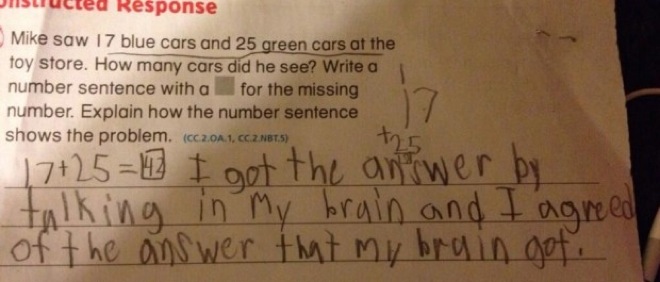 nstructed Response
Mike saw 17 blue cars and 25 green cars at the
toy store. How many cars did he see? Write a
number sentence with a for the missing
number. Explain how the number sentence
shows the problem. (CC.2.OA.1, CC.2.NBT.5)
1
17
+25
17+25=42 I got the answer by
talking in my brain and I agreed
of the answer that my brain got.